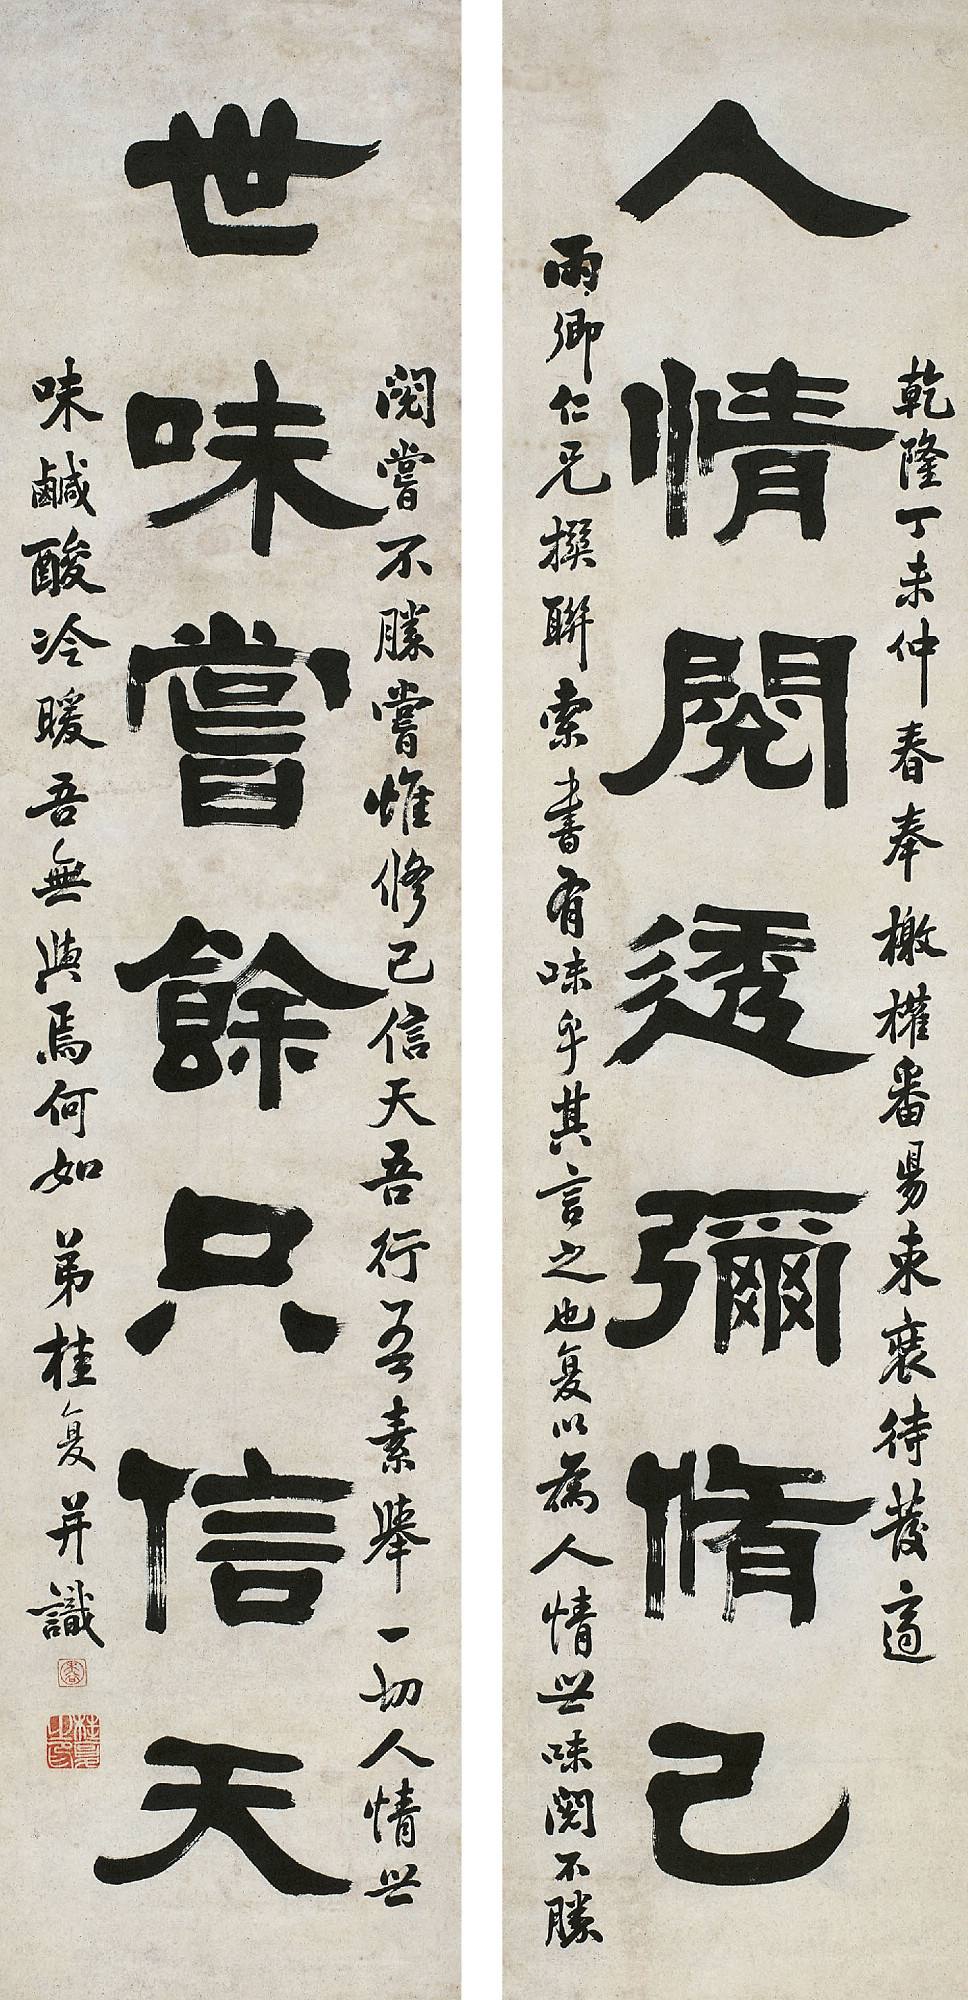 人情閱透彌脩己
乾隆丁未仲春奉檄權番昜束裝待發適
雨卿仁兄撰聯索書有味乎其言之也复以為人情世味閱不勝
世味嘗餘只信天
閱嘗不勝嘗惟修己信天吾行吾素舉一切人情世
味鹹酸冷暖吾無與焉何如弟桂复并識
桂复之印